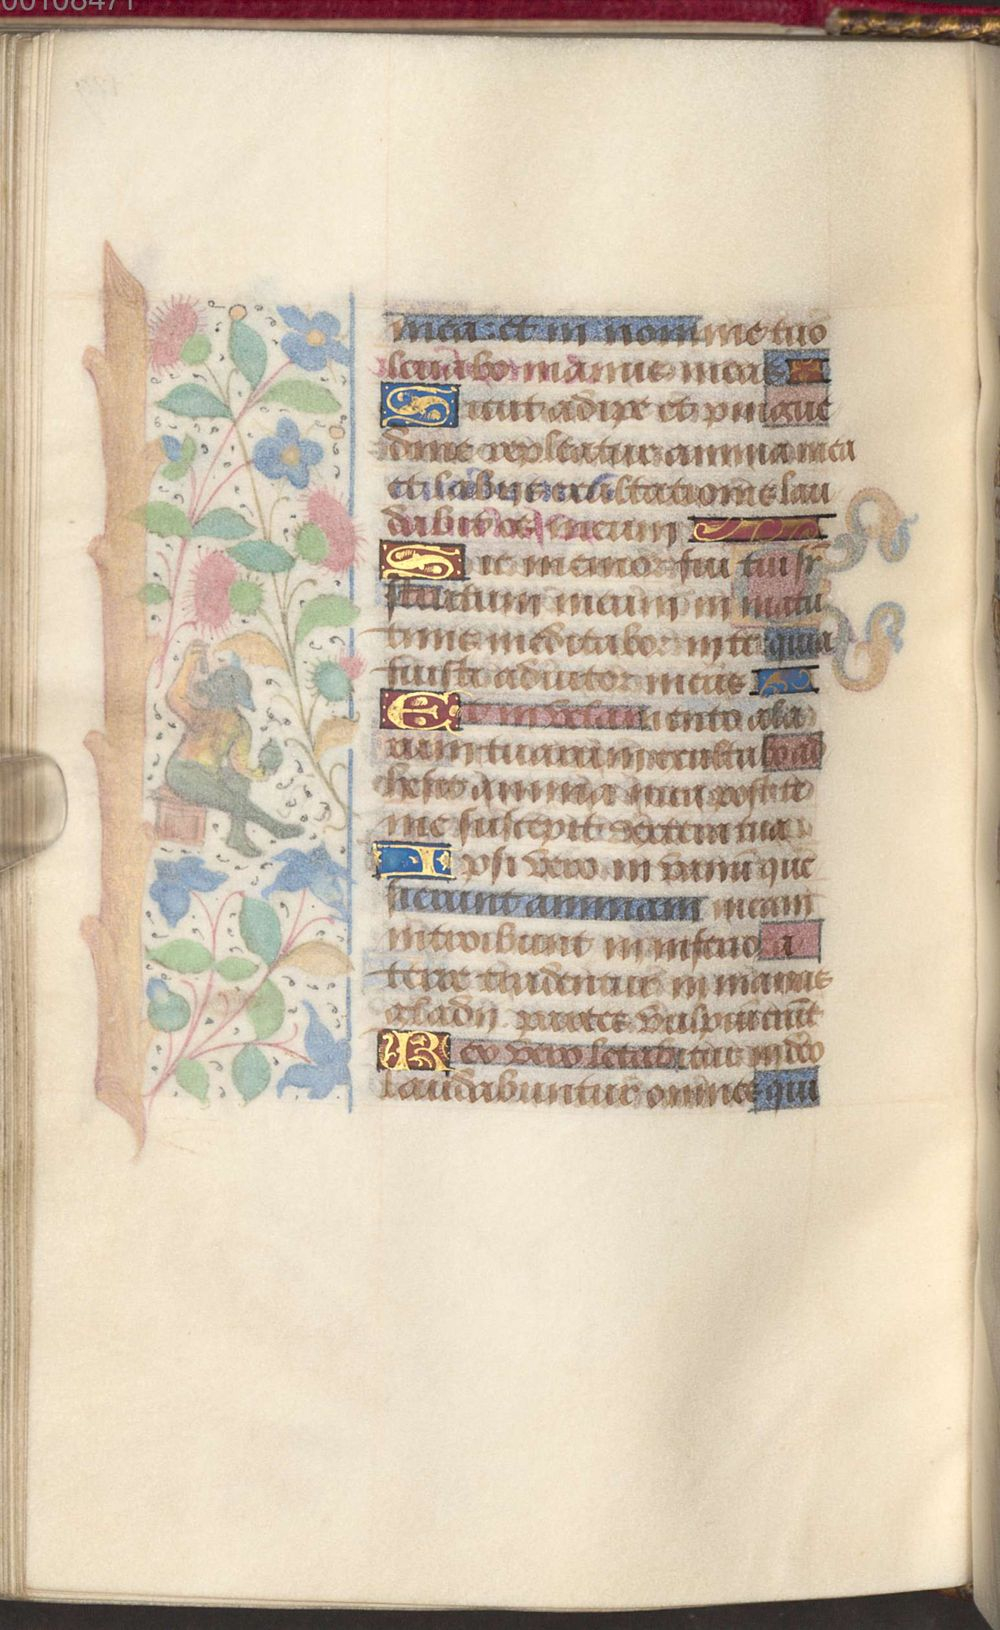 00108471
mea: et in nomine tuo
leuabo manus meas
Sicut adipe et pingue
dine repleatur anima mea
et labijs exultationis lau
dabit os meum
Sic memor fui tui sr̄
stratum meum in matu
tinis meditabor in te quia
fuisti adiutor meus
Et in velamento ala
rum tuarum exultabo ad
hesit anima mea post te
me suscepit dextera tua
Ipsi vero in vanu que
sierunt animam meam
introibunt in inferio a
terre tradentur in manus
gladij partes vulpiu erunt
Rex vero letabitur in deo
laudabuntur omnes qui